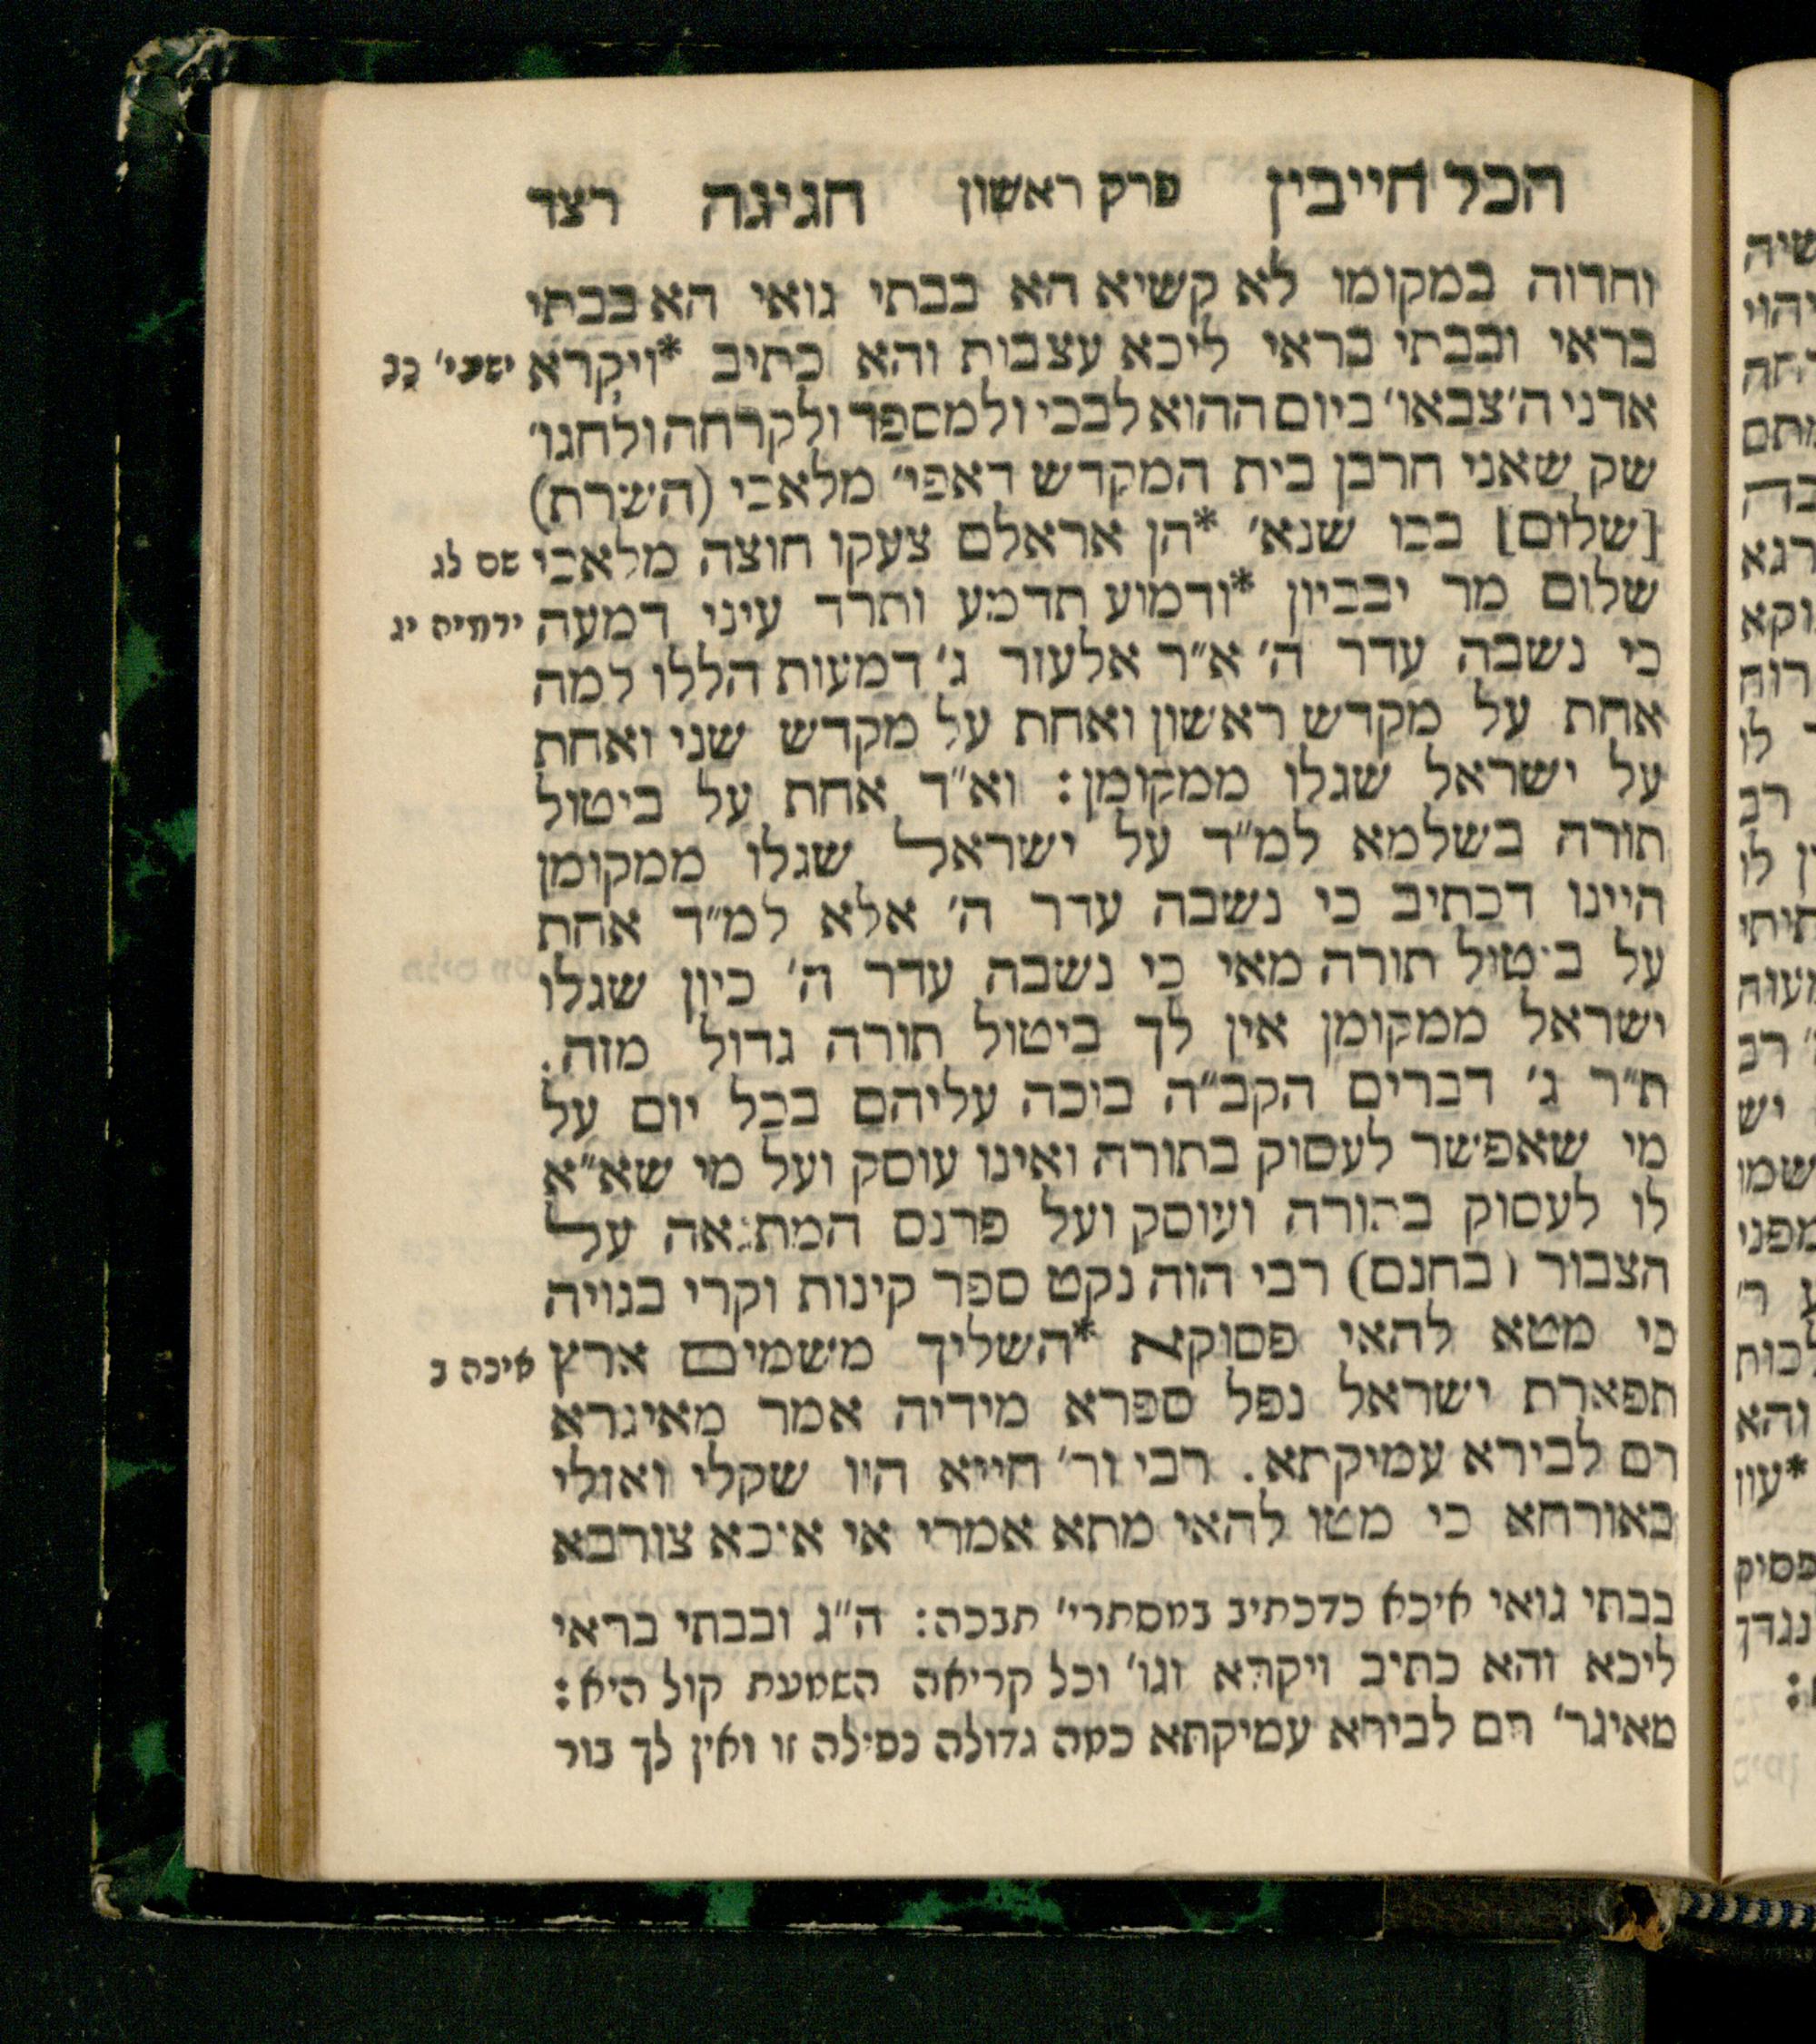 הכל חייבין פרק ראשון חגיגה רצד
וחדוה במקומו לא קשיא הא בבתי גואי הא בבתי
בראי ובבתי בראי ליכא עצבות והא כתיב *ויקרא ישעי׳ כב
אדני ה׳ צבאו׳ ביום ההוא לבכי ולמספד ולקרחה ולחגו׳
שק שאני חרבן בית המקדש דאפי׳ מלאכי (השרת)
[שלום] בכו שנא׳ *הן אראלם צעקו חוצה מלאכי שם לג
שלום מר יבכיון *ודמוע תדמע ותרד עיני דמעה ירמיה יג
כי נשבה עדר ה׳ א״ר אלעזר ג׳ דמעות הללו למה
אחת על מקדש ראשון ואחת על מקדש שני ואחת
על ישראל שגלו ממקומן: וא״ד אחת על ביטול
תורה בשלמא למ״ד על ישראל שגלו ממקומן
היינו דכתיב כי נשבה עדר ה׳ אלא למ״ד אחת
על ביטול תורה מאי כי נשבה עדר ה׳ כיון שגלו
ישראל ממקומן אין לך ביטול תורה גדול מזה.
ת״ר ג׳ דברים הקב״ה בוכה עליהם בכל יום על
מי שאפשר לעסוק בתורה ואינו עוסק ועל מי שא״א
לו לעסוק בתורה ועוסק ועל פרנס המתגאה על
הצבור (בחנם) רבי הוה נקט ספר קינות וקרי בגויה
כי מטא להאי פסוקא *השליך משמים ארץ איכה ב
תפארת ישראל נפל ספרא מידיה אמר מאיגרא
רם לבירא עמיקתא. רבי ור׳ חייא הוו שקלי ואזלי
באורחא כי מטו להאי מתא אמרי אי איכא צורבא
בבתי גואי איכא כדכתיב במסתרי׳ תבכה: ה״ג ובבתי בראי
ליכא והא כתיב ויקרא וגו׳ וכל קריאה השמעת קול היא:
מאיגר׳ רם לבירא עמיקתא כמה גדולה נפילה זו ואין לך בור